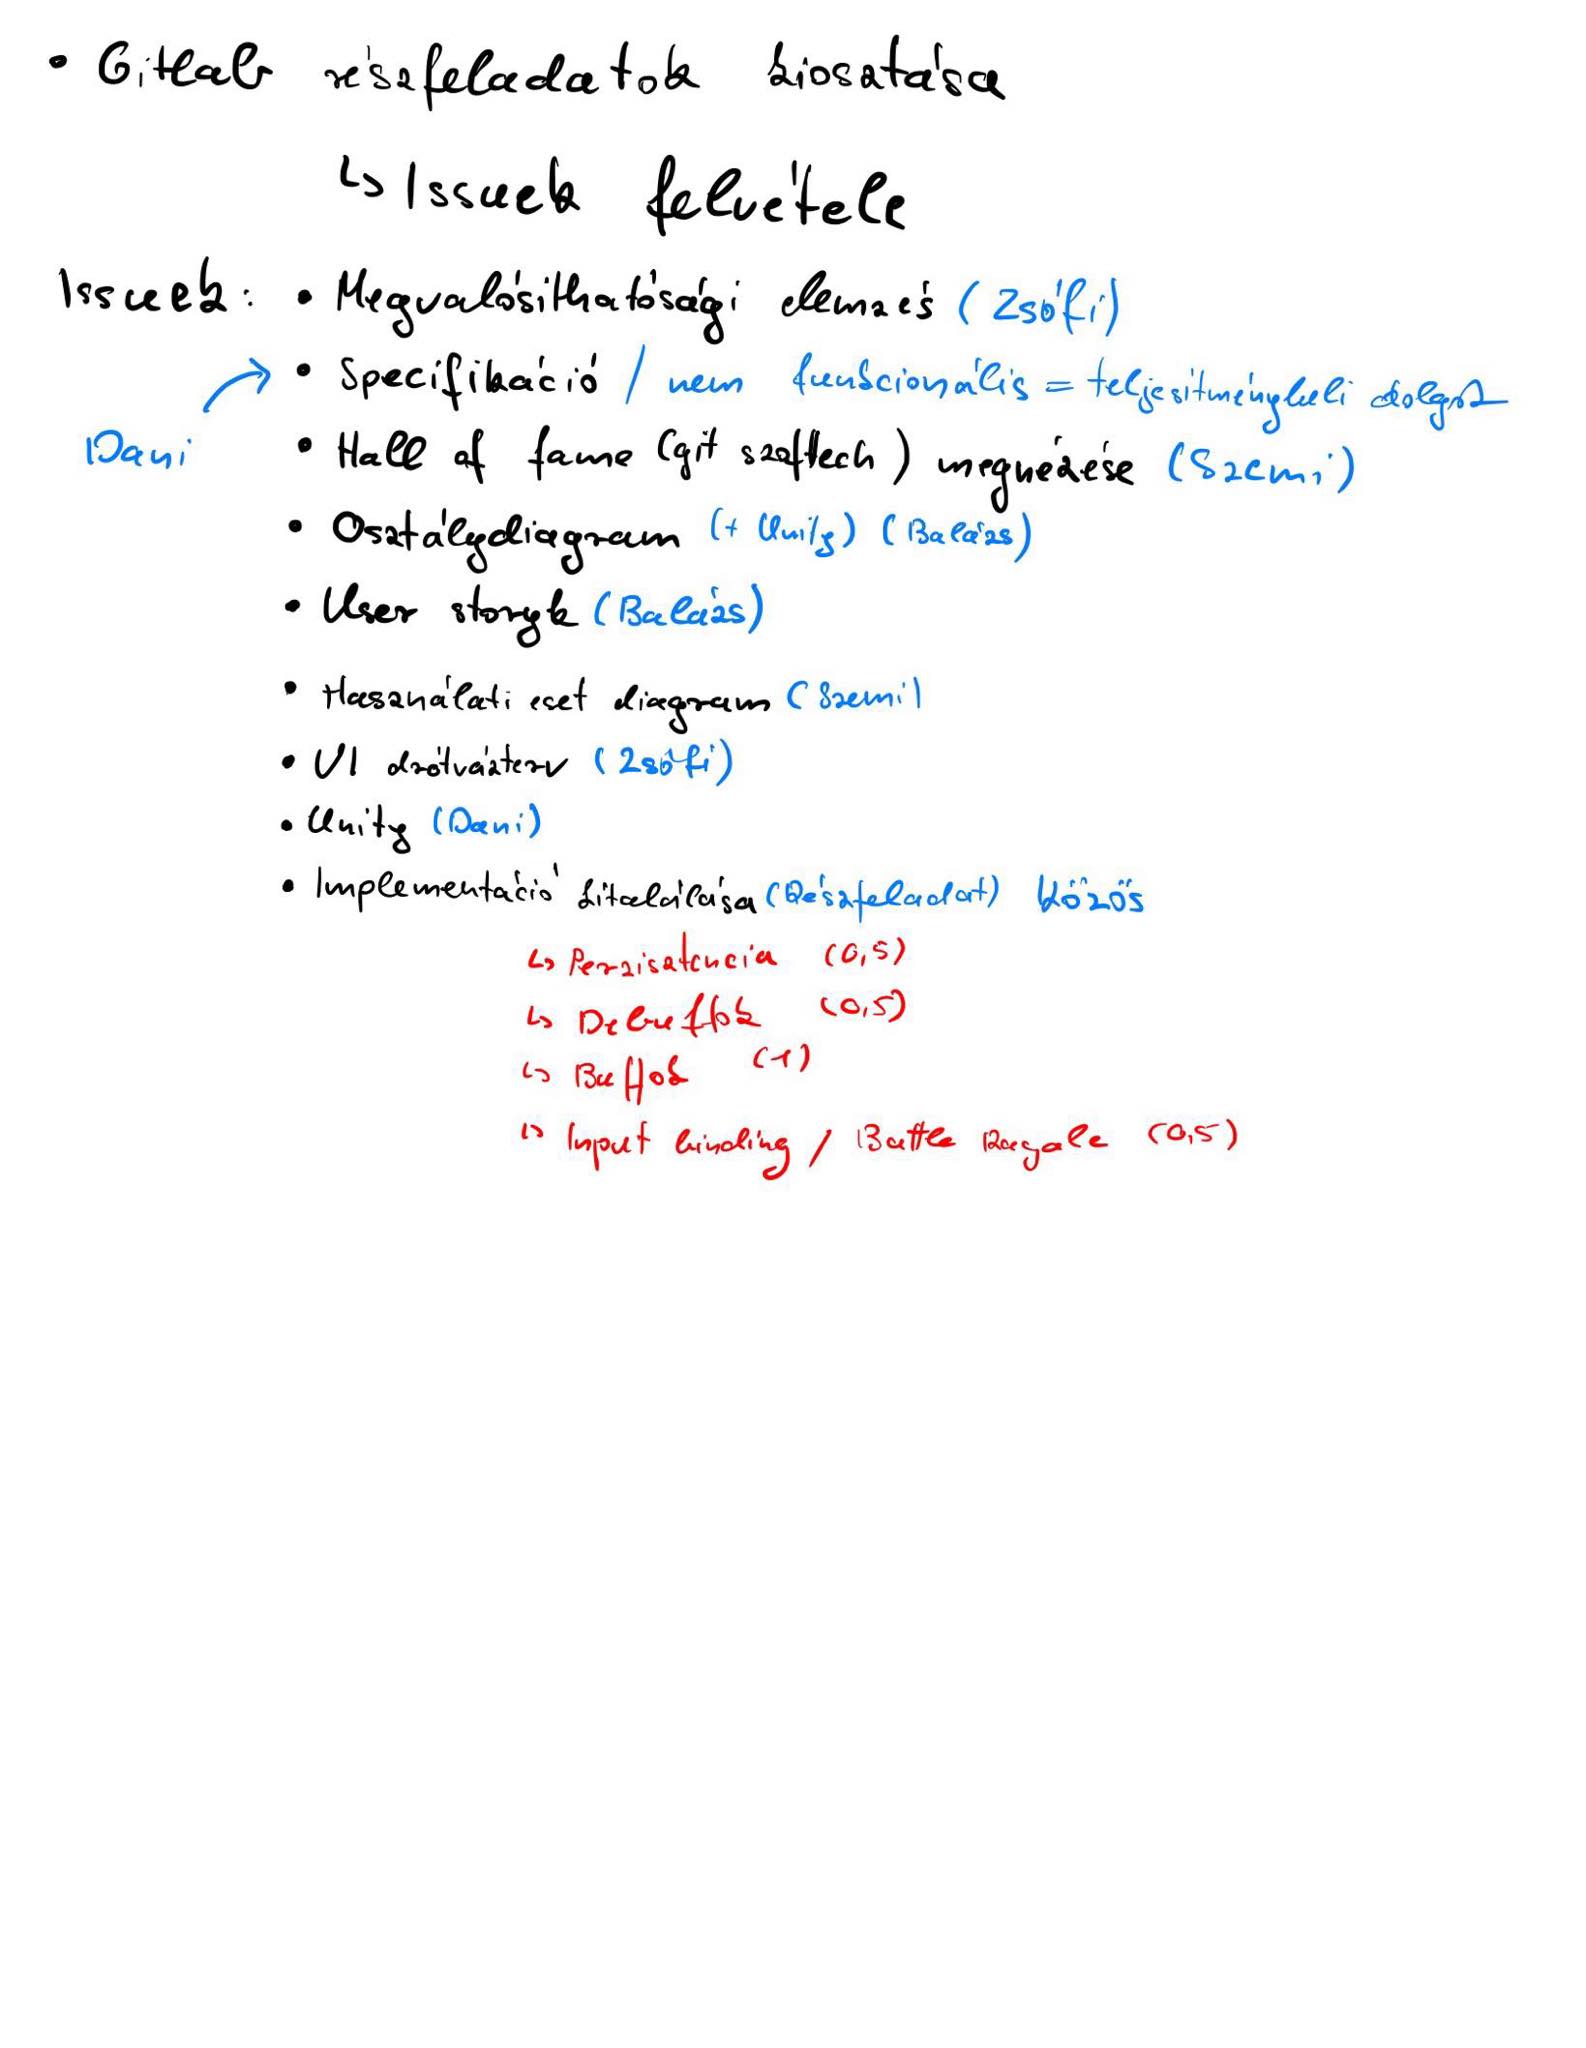 • Gitlab részfeladatok kiosztása
↳ Issuek felvétele
Issuek: • Megvalósíthatósági elemzés (Zsófi)
• Specifikáció / nem funkcionális = teljesítménybeli dolgok
Dani
• Hall of fame (git szoftech) megnézése (Szemi)
• Osztálydiagram (+ Unity) (Balázs)
• User storyk (Balázs)
• Használati eset diagram (Szemi)
• UI drótvázterv (Zsófi)
• Unity (Dani)
• Implementáció kitalálása (Részfeladat) közös
↳ Perzisztencia (0,5)
↳ Debuffok (0,5)
↳ Buffok (1)
↳ Input binding / Battle Royale (0,5)